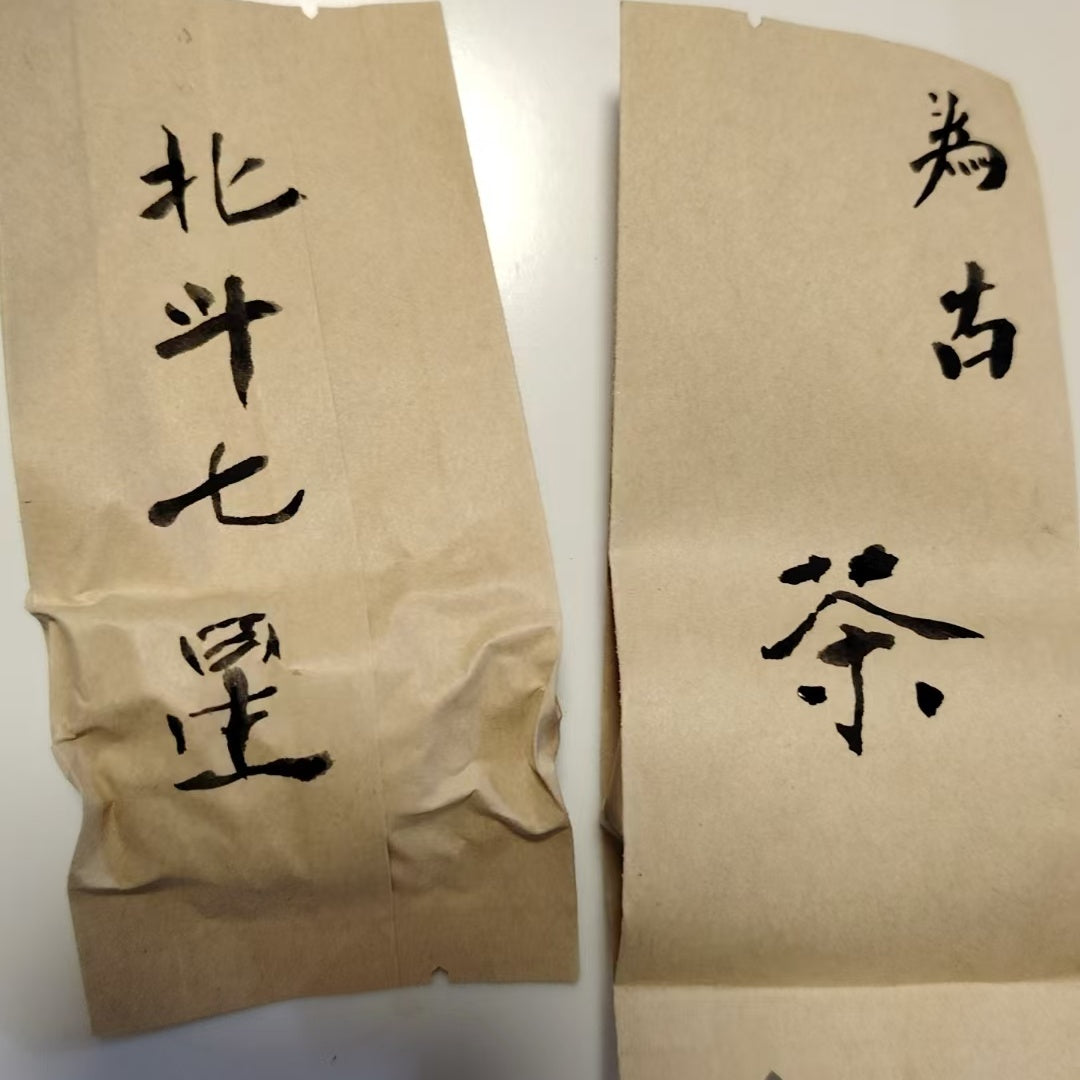 北斗七星
為古
茶